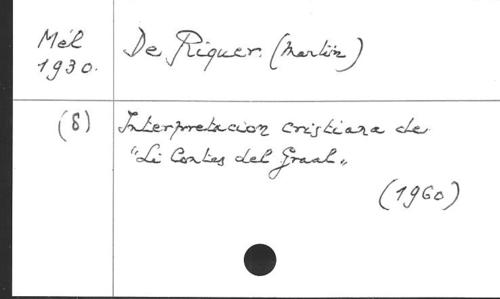 Mél De Riquer. (Martin)
1930.
(8) Interpretacion cristiana de
"Li Contes del Graal"
(1960)